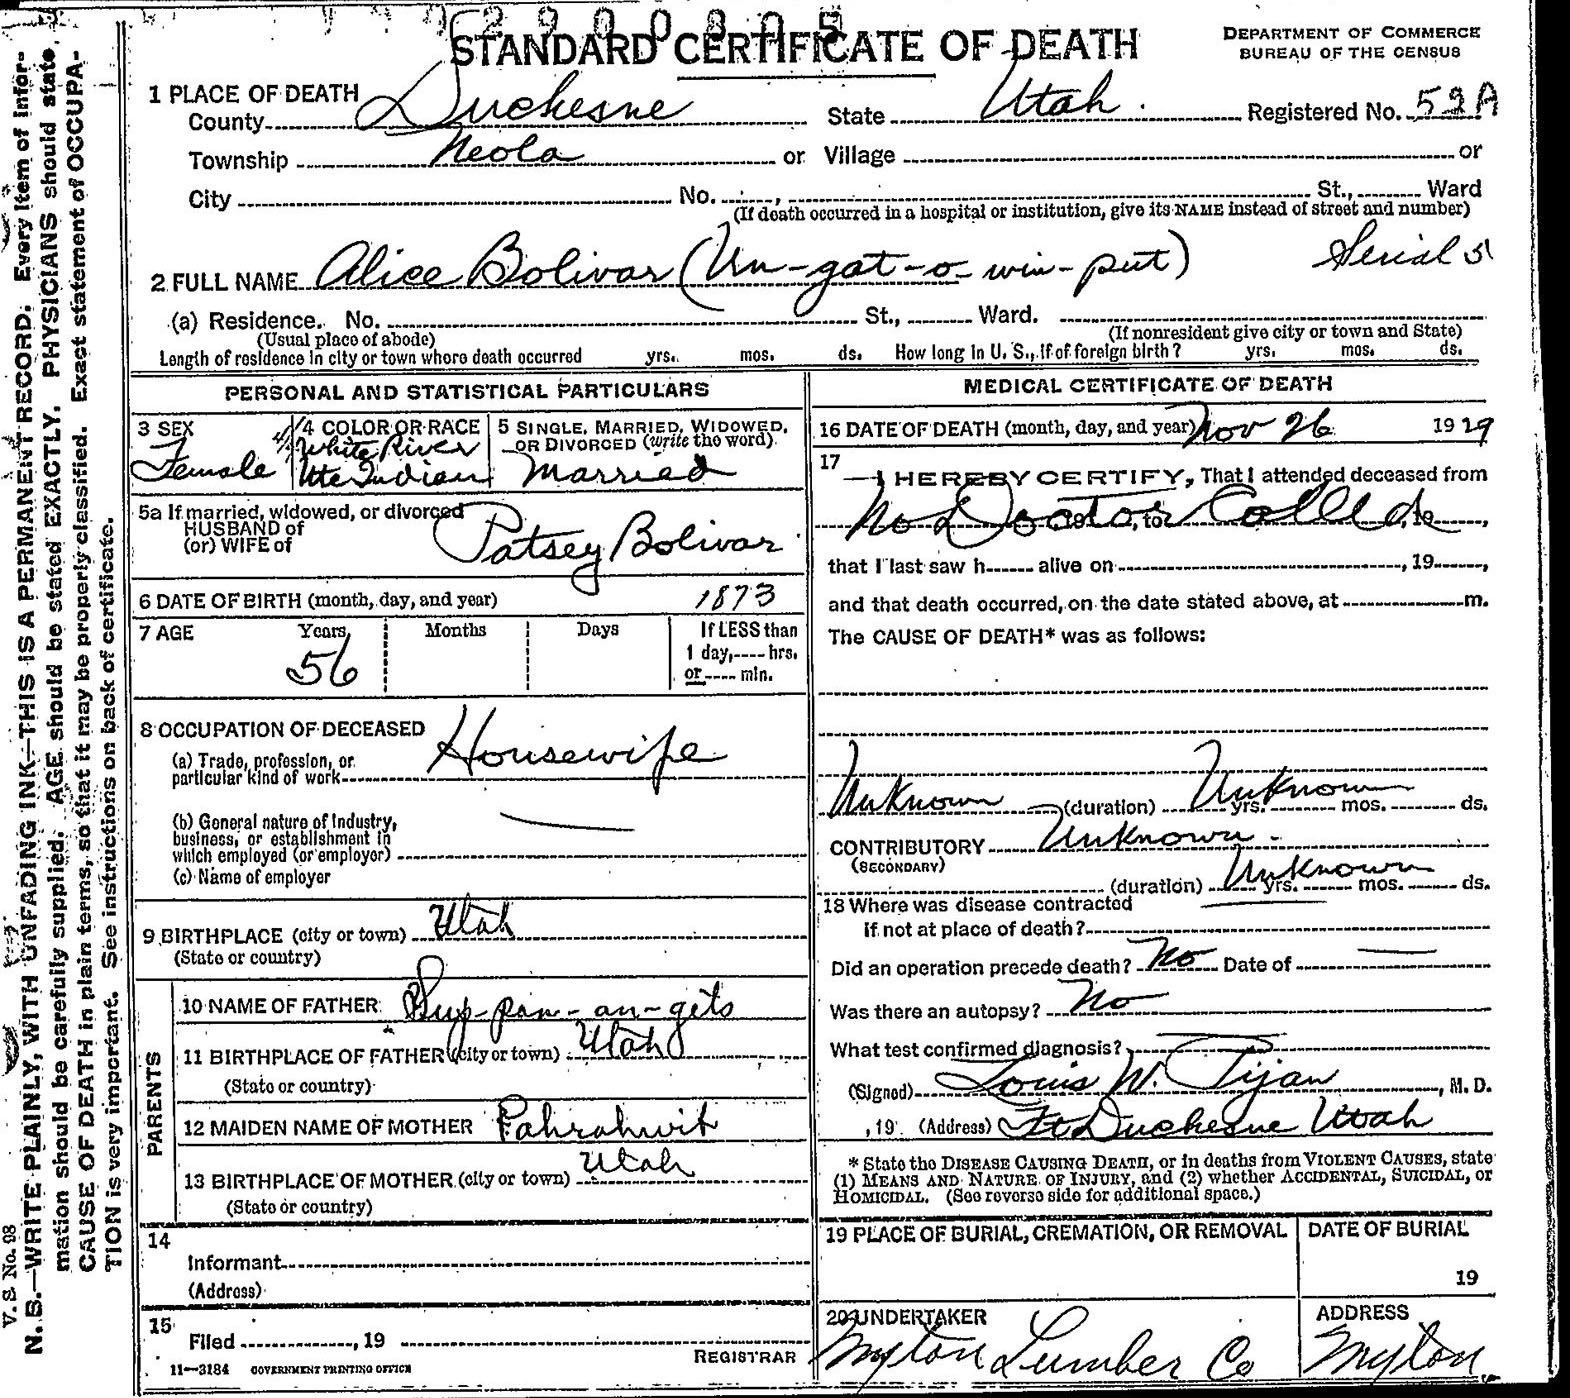 STANDARD CERTIFICATE OF DEATH
DEPARTMENT OF COMMERCE
BUREAU OF THE CENSUS
1 PLACE OF DEATH
County Duchesne State Utah. Registered No. 52A
Township Neola or Village or
City No. , St., Ward
(If death occurred in a hospital or institution, give its NAME instead of street and number)
Serial 5
2 FULL NAME Alice Bolivar (Un-gat-o-win-put)
(a) Residence. No. St., Ward.
(Usual place of abode) (If nonresident give city or town and State)
Length of residence in city or town where death occurred yrs. mos. ds. How long in U. S., if of foreign birth? yrs. mos. ds.
PERSONAL AND STATISTICAL PARTICULARS
3 SEX
Female
4 COLOR OR RACE
4/4 White River
Ute Indian
5 SINGLE, MARRIED, WIDOWED,
OR DIVORCED (write the word)
Married
5a If married, widowed, or divorced
HUSBAND of
(or) WIFE of
Patsey Bolivar
6 DATE OF BIRTH (month, day, and year) 1873
7 AGE Years Months Days If LESS than
56 1 day, ---- hrs.
or ---- min.
8 OCCUPATION OF DECEASED
(a) Trade, profession, or
particular kind of work Housewife
(b) General nature of industry,
business, or establishment in
which employed (or employer)
(c) Name of employer
9 BIRTHPLACE (city or town) Utah
(State or country)
PARENTS
10 NAME OF FATHER Sup-pan-an-gets
11 BIRTHPLACE OF FATHER (city or town) Utah
(State or country)
12 MAIDEN NAME OF MOTHER Pahrahwit
13 BIRTHPLACE OF MOTHER (city or town) Utah
(State or country)
14
Informant
(Address)
15
Filed , 19
REGISTRAR
11—3184 GOVERNMENT PRINTING OFFICE
MEDICAL CERTIFICATE OF DEATH
16 DATE OF DEATH (month, day, and year) Nov 26 1929
17
I HEREBY CERTIFY, That I attended deceased from
No Doctor Called
, 19 , to , 19 ,
that I last saw h alive on , 19 ,
and that death occurred, on the date stated above, at m.
The CAUSE OF DEATH* was as follows:
Unknown (duration) Unknown yrs. mos. ds.
CONTRIBUTORY Unknown
(SECONDARY)
(duration) Unknown yrs. mos. ds.
18 Where was disease contracted
if not at place of death?
Did an operation precede death? No Date of
Was there an autopsy? No
What test confirmed diagnosis?
(Signed) Louis W. Pijan, M. D.
, 19 (Address) Ft Duchesne Utah
* State the DISEASE CAUSING DEATH, or in deaths from VIOLENT CAUSES, state
(1) MEANS AND NATURE OF INJURY, and (2) whether ACCIDENTAL, SUICIDAL, or
HOMICIDAL. (See reverse side for additional space.)
19 PLACE OF BURIAL, CREMATION, OR REMOVAL
DATE OF BURIAL
19
20 UNDERTAKER
Myton Lumber Co
ADDRESS
Myton
V. S No. 98
N. B.—WRITE PLAINLY, WITH UNFADING INK—THIS IS A PERMANENT RECORD. Every item of infor-
mation should be carefully supplied. AGE should be stated EXACTLY. PHYSICIANS should state
CAUSE OF DEATH in plain terms, so that it may be properly classified. Exact statement of OCCUPA-
TION is very important. See instructions on back of certificate.